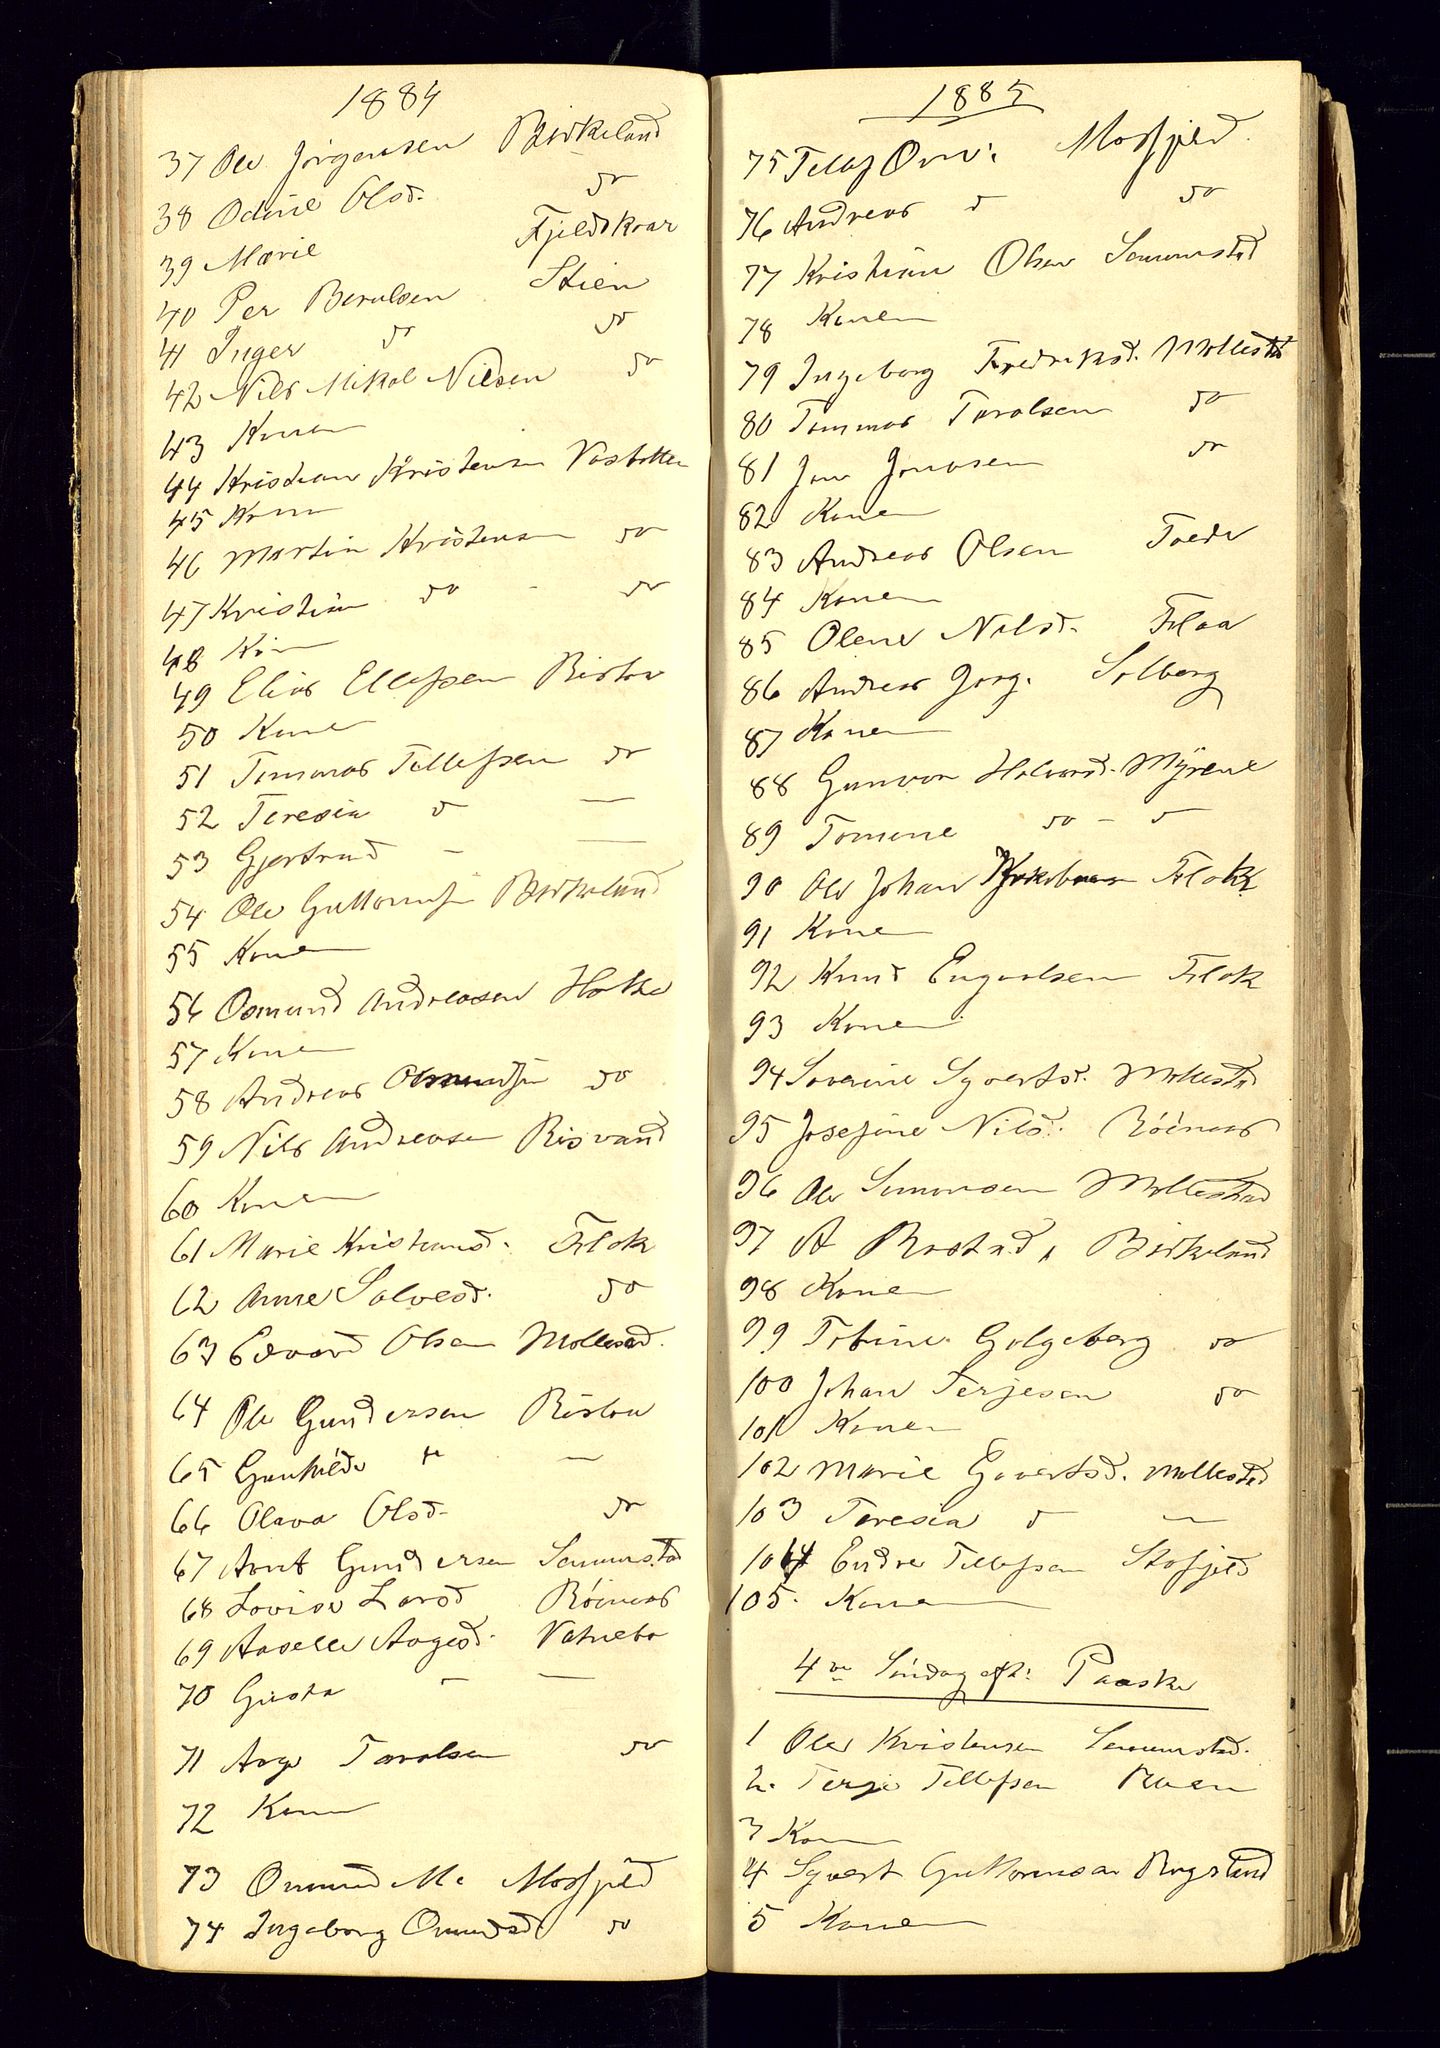 1884
37 Ole Jörgensen Birkeland
38 Odine Olsd. do
39 Marie Fjeldskaar
40 Per Berulsen Stien
41 Inger do do
42 Nils Mikal Nilsen do
43 Konen
44 Kristian Kristensen
45 Konen
46 Martin Kristensen do
47 Kristian do - do
48 Kon
49 Elias Ellefsen Birkov
50 Kone
51 Tommas Tellefsen do
52 Teresia d —
53 Gjertrud - —
54 Ole Guttormsen Birkeland
55 Kone
56 Osmund Andreasen
57 Konen
58 Andreas Osmundsen do
59 Nils Andreasen Risvand
60 Konen
61 Marie Kristiansd. Flak
62 Anne Salvesd. do
63 Edvard Olsen Mollesad.
64 Ole Gundersen Ristov
65 Gunhilde " —
66 Olava Olsd. do
67 Arnt Gundersen Senumstad
68 Lovise Larsd Röinaas
69 Aaselle Aagesd. Vatnebo
70 Gusta - —
71 Aage Taralsen do
72 Konen
73 Omund M. Mosfjeld
74 Ingeborg Omundsd do
1885
75 Tellef Om. Mosfjeld.
76 Andreas d do
77 Kristian Olsen Senumstad
78 Konen
79 Ingeborg Fredriksd. Mollestad
80 Tommas Taralsen do
81 Jon Jonasen do
82 Konen
83 Andreas Olsen
84 Konen
85 Olene Nilsd. Flaa
86 Andreas Jörg. Solberg
87 Konen
88 Gunvor Halvorsd. Myrene
89 Tomine do - d
90 Ole Johan Flak
91 Kone
92 Knud Engvalsen Flak
93 Konen
94 Soverine Syvertsd. Mollestd
95 Josefine Nilsd. Röinaas
96 Ole Simonsen Mollestad
97 A Rostad, Birkeland
98 Konen
99 Tobine Golgeberg do
100 Johan Terjesen do
101 Konen
102 Marie Evertsd. Mollestad
103 Teresia d —
104 Endre Tellefsen Stofjeld
105. Konen
4de Söndag eft: Paaske
1 Ole Kristensen Senumstad.
2. Terje Tellefsen Moen
3 Kon
4 Syvert Guttormsen Rugsland
5 Konen